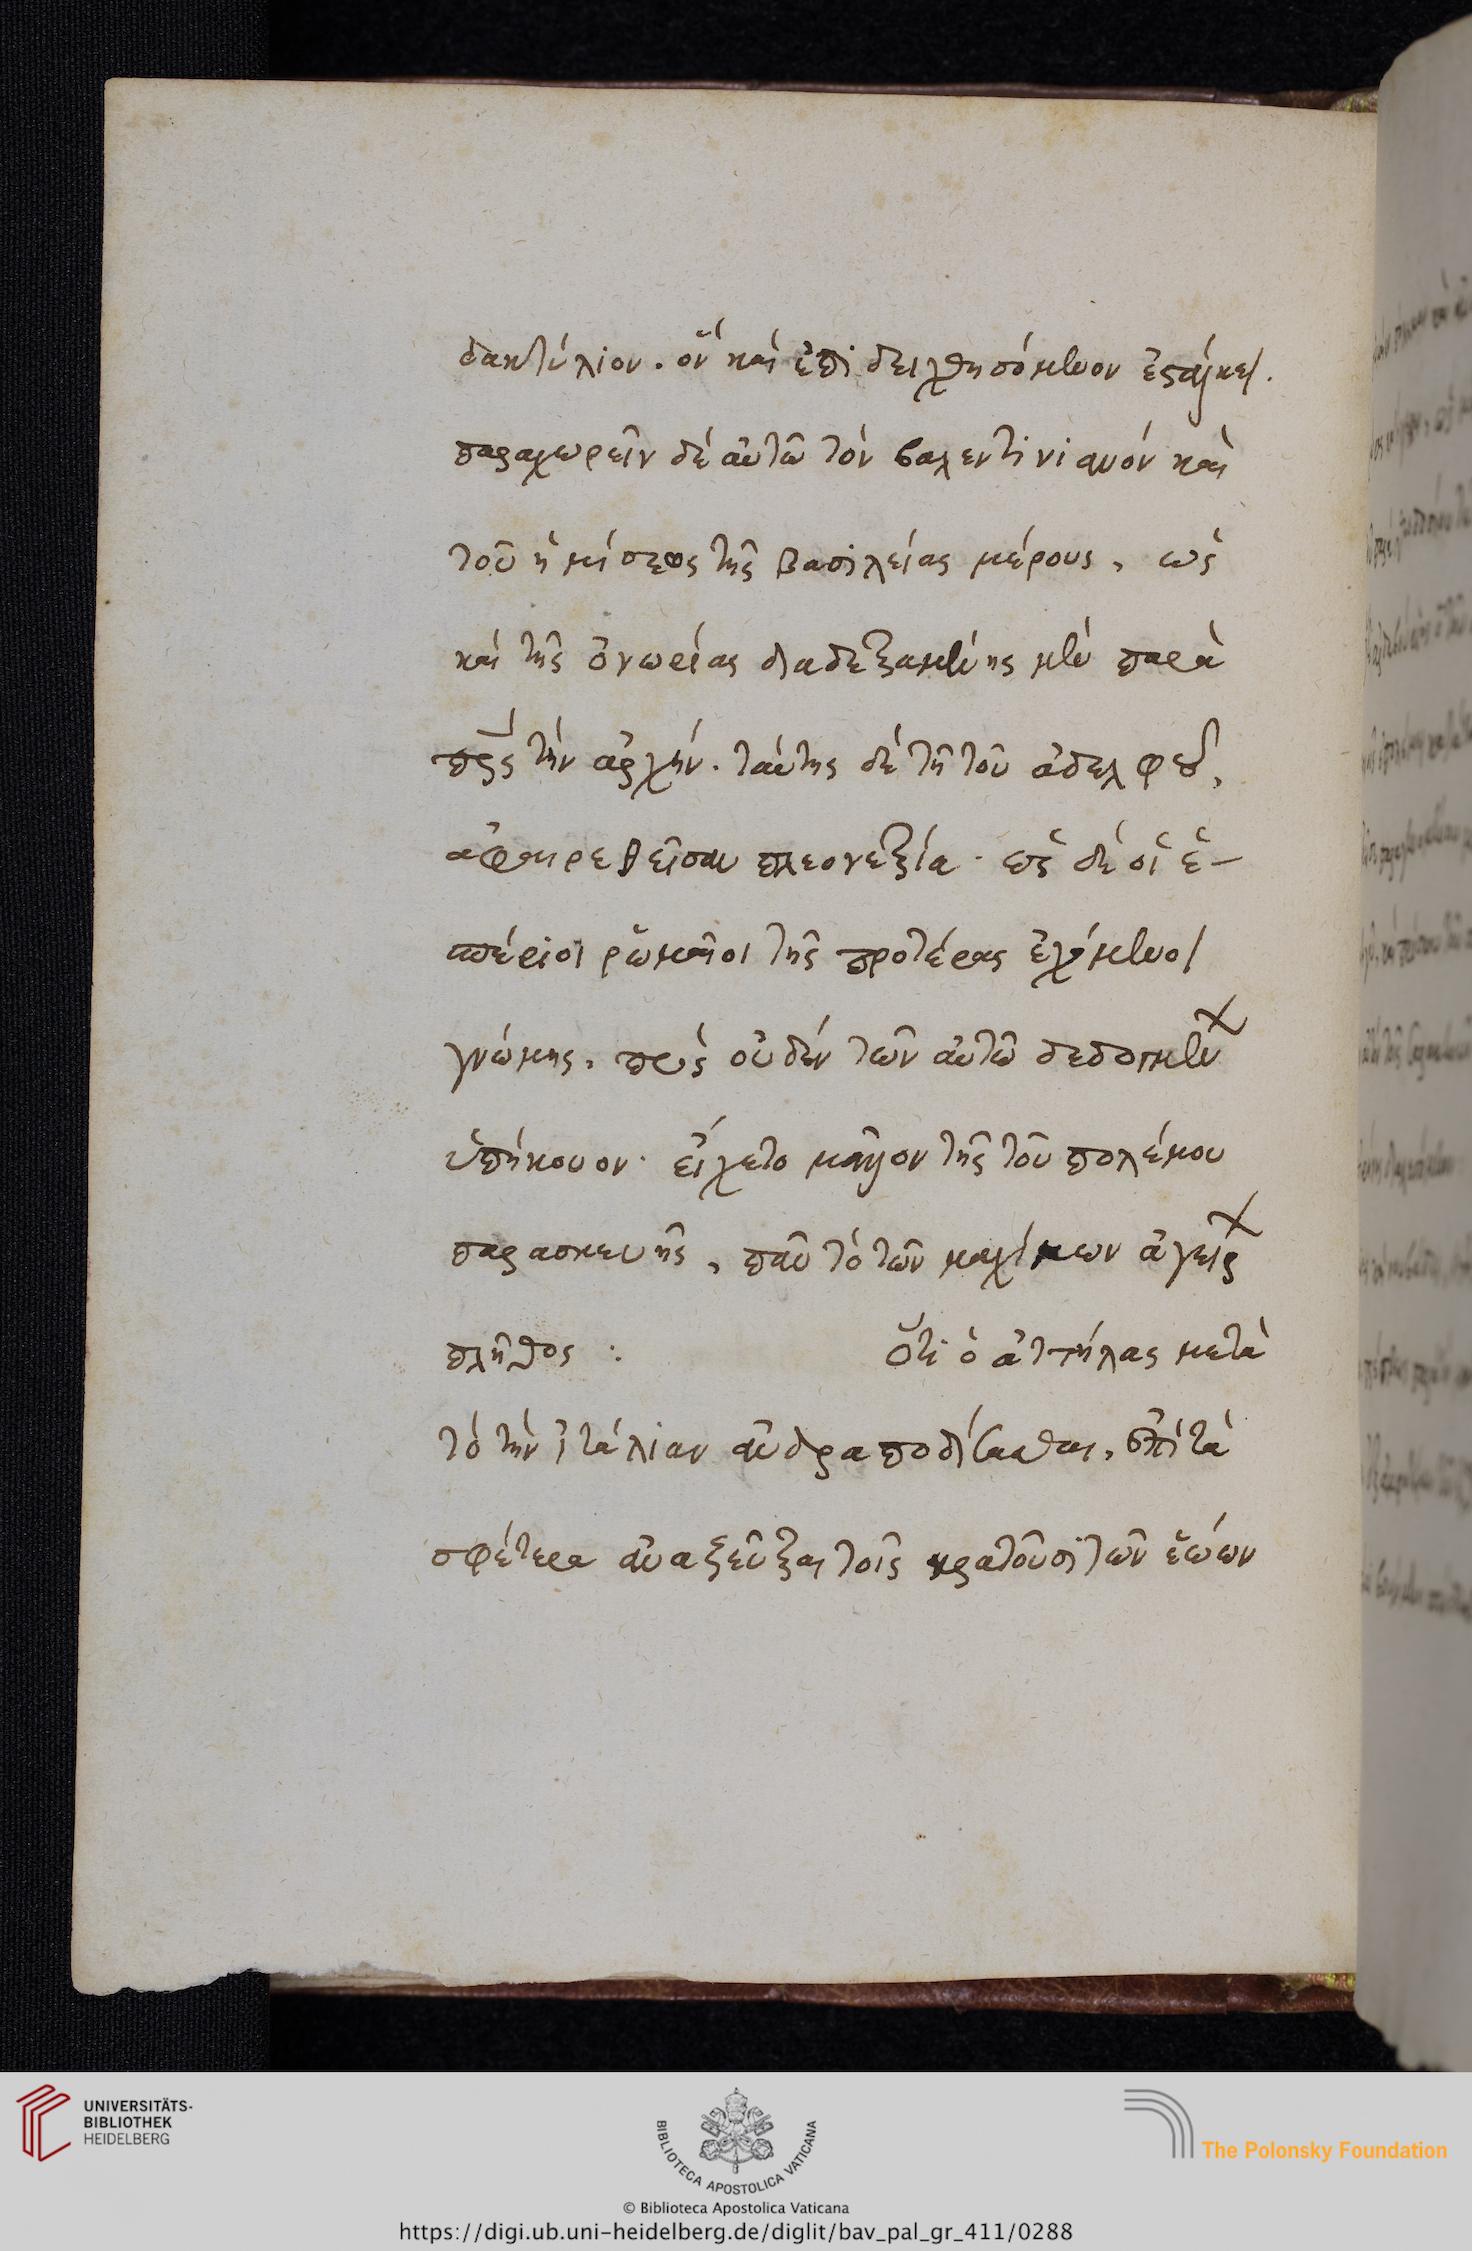 δακτύλιον. ὃν καὶ ἐπιδειχθησόμενον ἐστάλκει.
παραχωρεῖν δὲ αὐτῶ τὸν βαλεντινιανὸν καὶ
τοῦ ἡμίσεως τῆς βασιλείας μέρους, ὡς
καὶ τῆς ὀνωρίας διαδεξαμένης μὲν παρὰ
πρς τὴν ἀρχήν. ταύτης δὲ τῆ τοῦ ἀδελφοῦ,
ἀφαιρεθεῖσαν πλεονεξία. ὡς δὲ οἱ ἑ-
σπέριοι ῥωμαῖοι τῆς προτέρας ἐχόμενοι
γνώμης, πρὸς οὐδὲν τῶν αὐτῶ δεδογμέν
ὑπήκουον. εἴχετο μᾶλλον τῆς τοῦ πολέμου
παρασκευῆς, πᾶν τὸ τῶν μαχίμων ἀγείρ
πλῆθος : Ὅτι ὁ ἀττήλας μετὰ
τὸ τὴν ἰτάλιαν ἀνδραποδίσασθαι, ἐπὶ τὰ
σφέτερα ἀναζεύξας τοῖς κρατοῦσι τῶν ἑώων
UNIVERSITÄTS-
BIBLIOTHEK
HEIDELBERG
BIBLIOTECA APOSTOLICA VATICANA
The Polonsky Foundation
© Biblioteca Apostolica Vaticana
https://digi.ub.uni-heidelberg.de/diglit/bav_pal_gr_411/0288